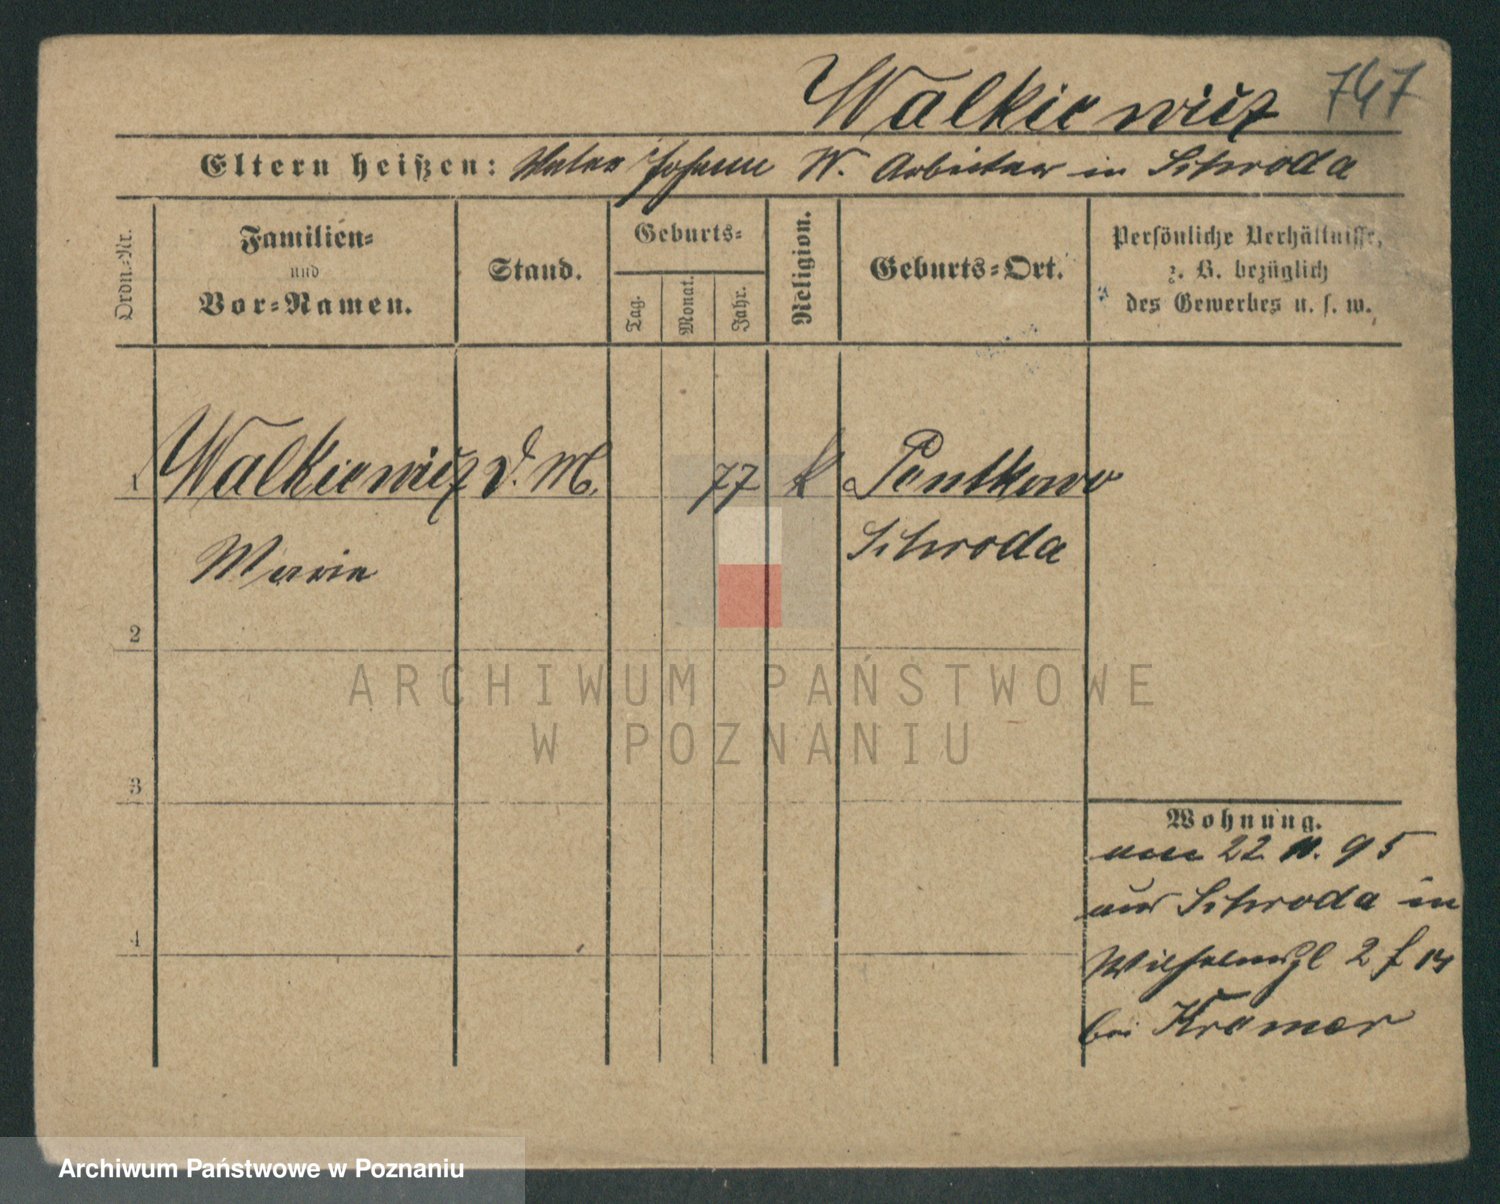 Walkiewicz 747
Eltern heißen: Vater Johann W. Arbeiter in Schroda
Ordn.-Nr.
Familien-
und
Vor-Namen.
Stand.
Geburts-
Tag.
Monat.
Jahr.
Religion.
Geburts-Ort.
Persönliche Verhältnisse,
z. B. bezüglich
des Gewerbes u. s. w.
1 Walkiewicz D. M. 77 k Pentkowo
Marie Schroda
2
3
4
Wohnung.
am 22 11. 95
aus Schroda in
Wilhelmspl 2 f 14
bei Kramer
ARCHIWUM PAŃSTWOWE
W POZNANIU
Archiwum Państwowe w Poznaniu